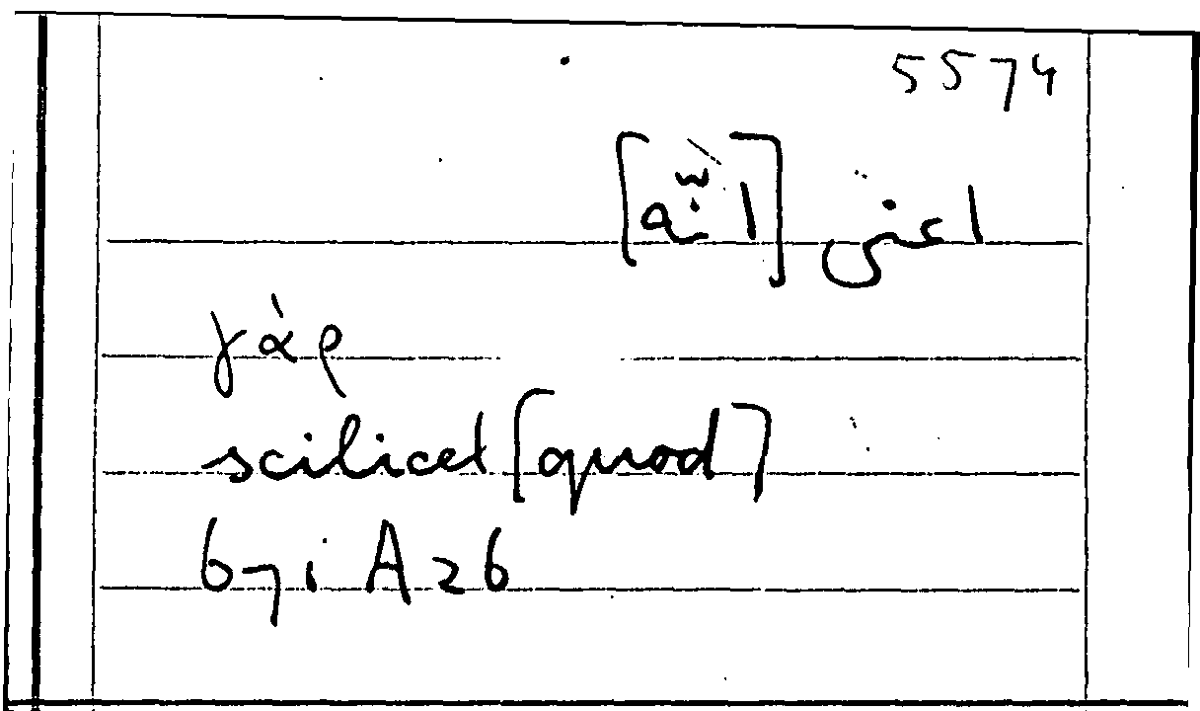 5574
اعنى [انّه]
γὰρ
scilicet [quod]
671 A 26